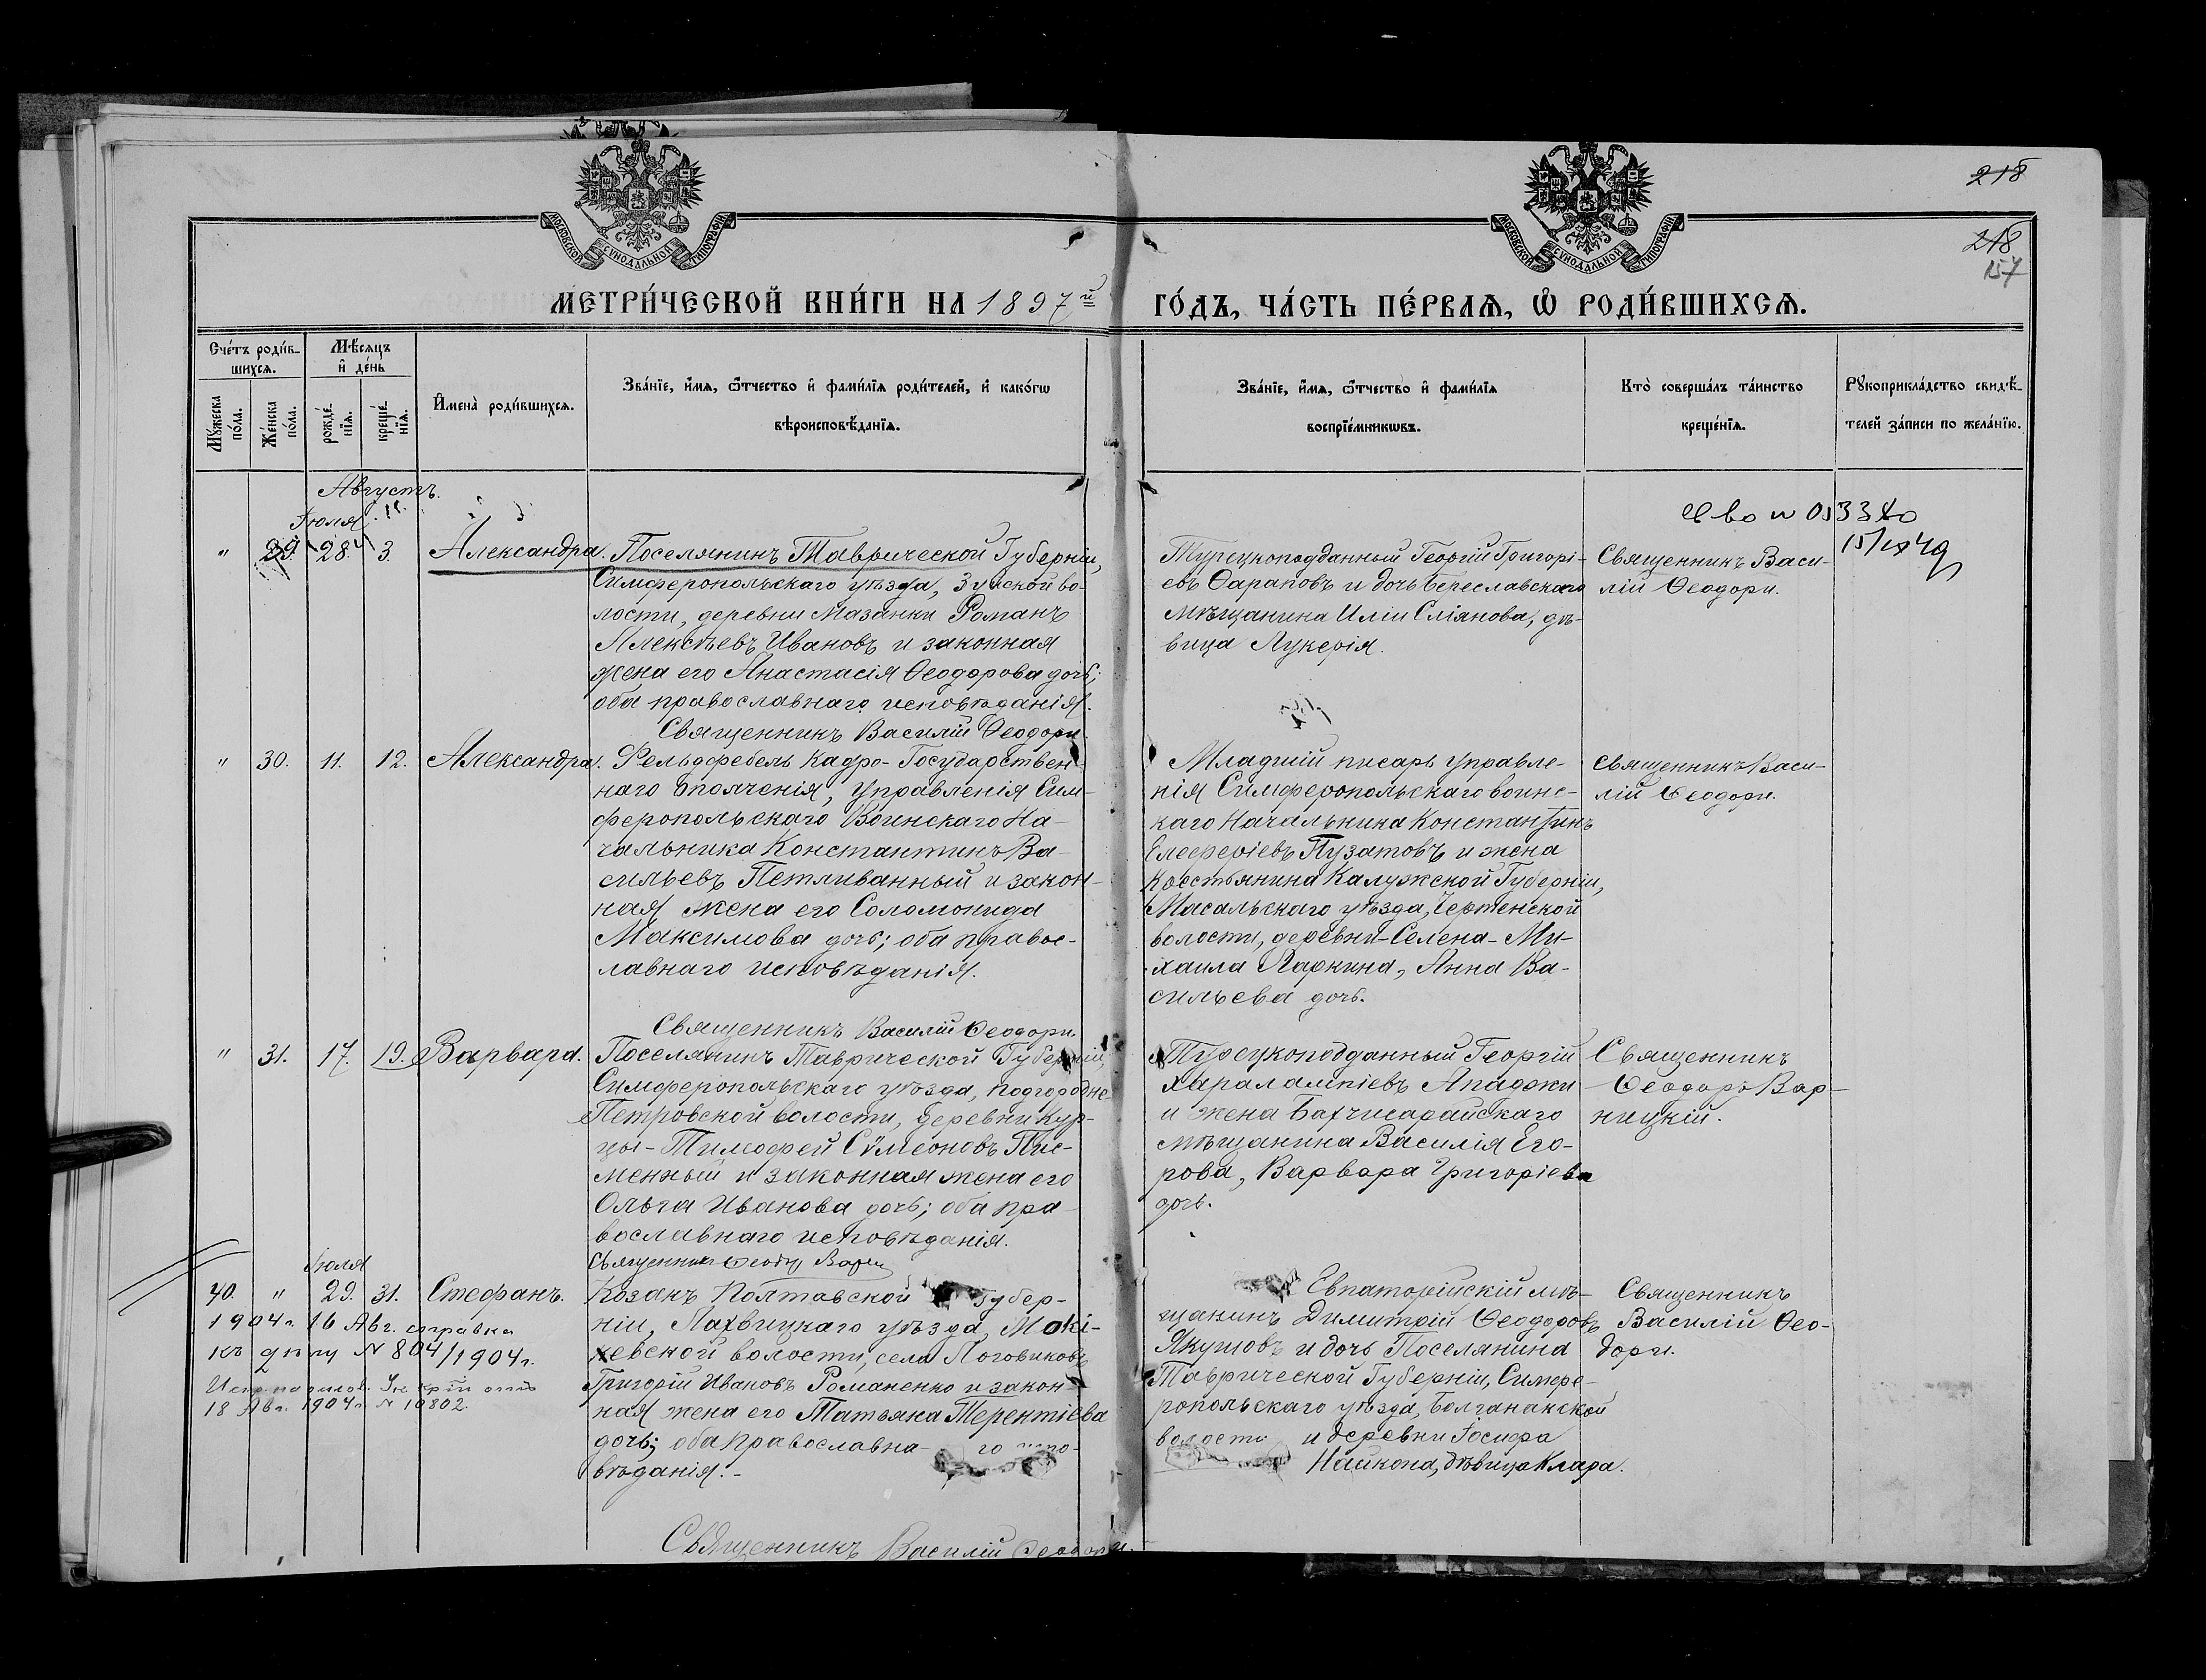 218
218
157
МОСКОВСКОЙ СѴНОДАЛЬНОЙ ТИПОГРАФІИ
МОСКОВСКОЙ СѴНОДАЛЬНОЙ ТИПОГРАФІИ
МЕТРИ́ЧЕСКОЙ КНИ́ГИ НА 1897й ГО́ДЪ, ЧА́СТЬ ПЕ́РВАѦ, Ѽ РОДИ́ВШИХСѦ.
Сче́тъ роди́в-
шихсѧ.
Мꙋ́жеска по́ла.
Же́нска по́ла.
Мѣ́сѧцъ
и҆ де́нь
рожде́-
нїѧ.
креще́-
нїѧ.
И҆мена̀ роди́вшихсѧ.
Зва́нїе, и҆́мѧ, ѻ҆́тчество и҆ фами́лїѧ роди́телей, и҆ како́гѡ
вѣроисповѣ́данїѧ.
Зва́нїе, и҆́мѧ, ѻ҆́тчество и҆ фами́лїѧ
воспрїе́мникѡвъ.
Кто̀ соверша́лъ та́инство
креще́нїѧ.
Рꙋкоприкла́дство свидѣ́-
телей за́писи по жела́нїю.
Августъ.
Іюля
" 29. 28. 3. Александра. Поселянинъ Таврической Губерніи,
Симферопольскаго уѣзда, Зуйской во-
лости, деревни Мазанки Романъ
Алексѣевъ Ивановъ и законная
жена его Анастасія Ѳеодорова дочь;
оба православнаго исповѣданія.
Священникъ Василій Ѳеодори
Турецкоподданный Георгій Григорі-
евъ Сараповъ и дочь Береславскаго
мѣщанина Иліи Сліянова, дѣ-
вица Лукерія.
Священникъ Васи-
лій Ѳеодори.
св во № 053380
15/IX 49
" 30. 11. 12. Александра. Фельдфебель Кадро-Государствен-
наго Ополченія, Управленія Сим-
феропольскаго Воинскаго На-
чальника Константинъ Ва-
сильевъ Петливанный и закон-
ная жена его Соломонида
Максимова дочь; оба правос-
лавнаго исповѣданія.
Священникъ Василій Ѳеодори.
Младшій писарь Управле-
нія Симферопольскаго воинс-
каго Начальника Константинъ
Елеферіевъ Пузатовъ и жена
Крестьянина Калужской Губерніи,
Масальскаго уѣзда, Чертенской
волости, деревни-Селена-Ми-
хаила Ларкина, Анна Ва-
сильева дочь.
Священникъ Васи-
лій Ѳеодори.
" 31. 17. 19. Варвара. Поселянинъ Таврической Губерніи,
Симферопольскаго уѣзда, Подгородне-
Петровской волости, деревни Кур-
цы-Тимофей Сѵмеоновъ Пис-
менный и законная жена его
Ольга Иванова дочь; оба пра-
вославнаго исповѣданія.
Священникъ Ѳеодоръ Варн
Турецкоподданный Георгій
Харалампіевъ Ападжи
и жена Бахчисарайскаго
мѣщанина Василія Его-
рова, Варвара Григоріева
дочь.
Священникъ
Ѳеодоръ Вар-
ницкій.
Іюля
40. " 29. 31. Стефанъ. Козакъ Полтавской Губер-
ніи, Лахвицкаго уѣзда, Мокі-
евской волости, села Логовиковъ
Григорій Ивановъ Романенко и закон-
ная жена его Татьяна Терентіева
дочь; оба православна- го испо-
вѣданія.-
Священникъ Василій Ѳеодори.
1904 г. 16 Авг. справка
къ дѣлу № 804/1904 г.
18 Авг. 1904 г. № 10802.
Евпаторійскій мѣ-
щанинъ Димитрій Ѳеодоровъ
Якушовъ и дочь Поселянина
Таврической Губерніи, Симфе-
ропольскаго уѣзда, Болганакской
волости и деревни Іосифа
Найкона, дѣвица Клара.
Священникъ
Василій Ѳео-
дори.